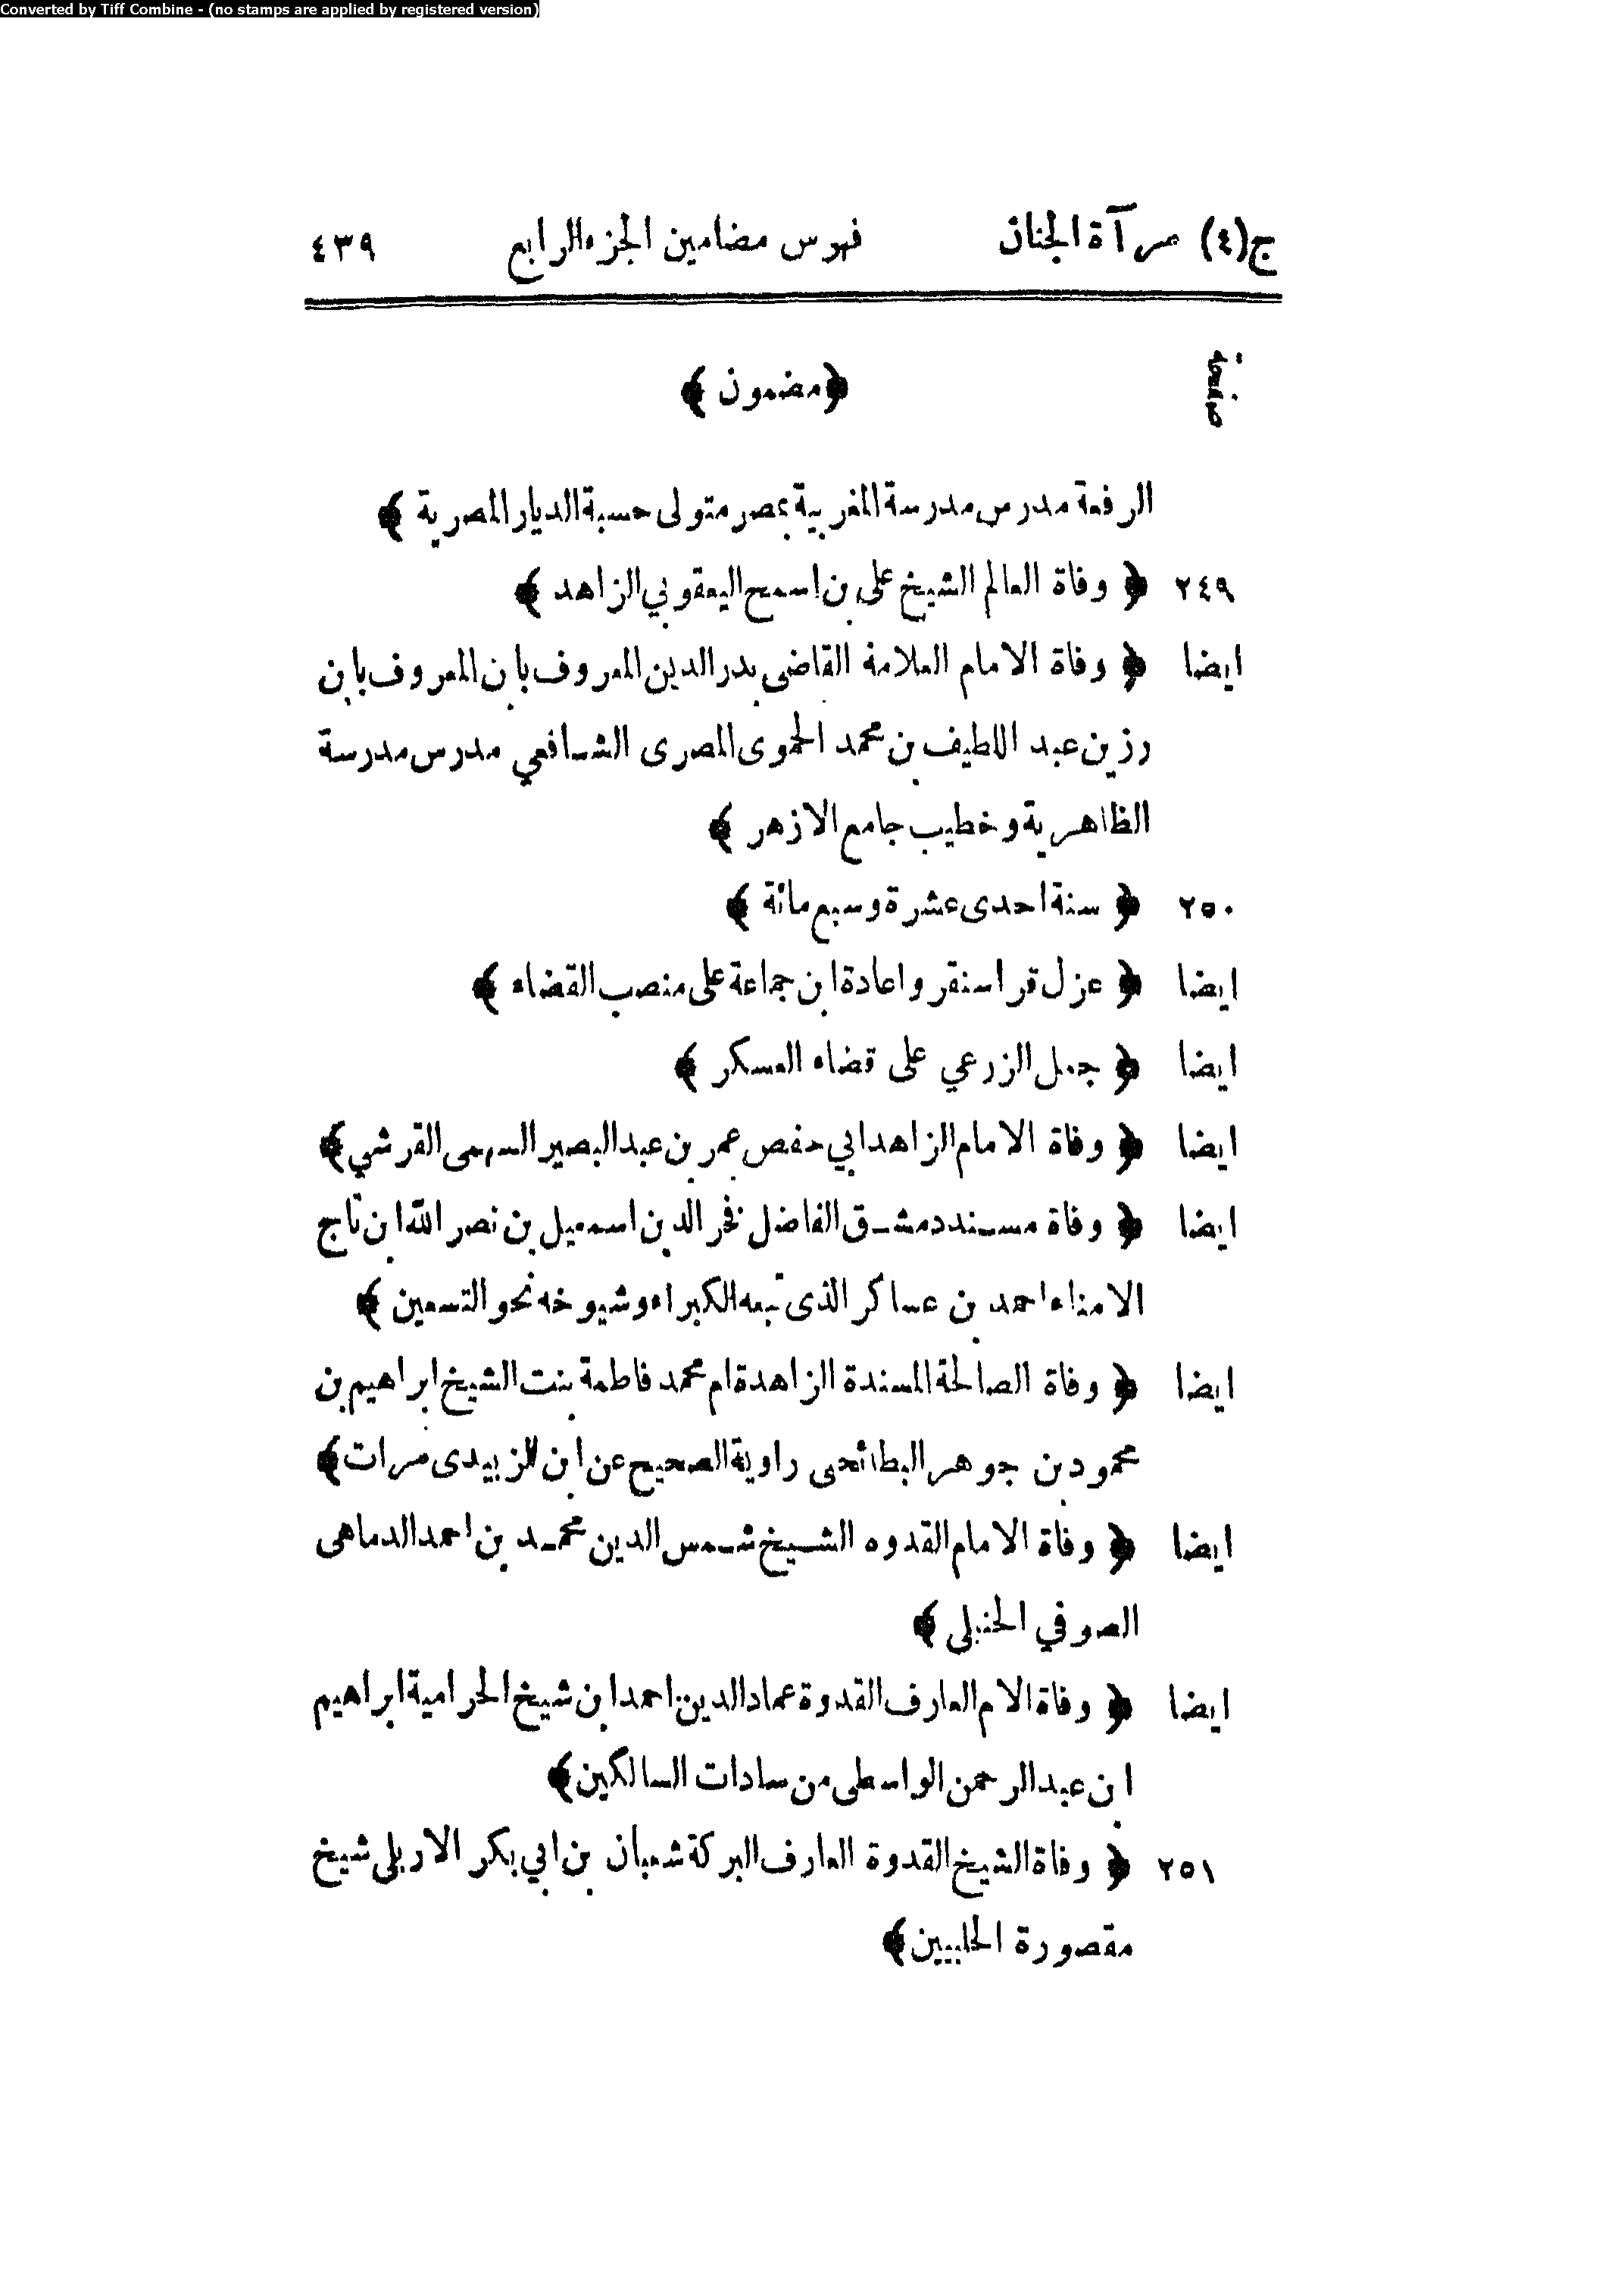 Converted by Tiff Combine - (no stamps are applied by registered version)
ج(٤) مرآة الجنان فهرس مضامين الجزء الرابع ٤٣٩
صفحة ﴿مضمون﴾
الرفعة مدرس مدرسة المغربية بمصر متولى حسبة الديار المصرية ﴾
٢٤٩ ﴿ وفاة العالم الشيخ على بن اسمح اليعقوبي الزاهد ﴾
ايضا ﴿ وفاة الامام العلامة القاضى بدر الدين المعروف بابن المعروف بابن
رزين عبد اللطيف بن محمد الحموى المصرى الشافعي مدرس مدرسة
الظاهرية وخطيب جامع الازهر ﴾
٢٥٠ ﴿ سنة احدى عشرة وسبع مائة ﴾
ايضا ﴿ عزل قراسنقر واعادة ابن جماعة على منصب القضاء ﴾
ايضا ﴿ جعل الزرعي على قضاء العسكر ﴾
ايضا ﴿ وفاة الامام الزاهد ابي حفص عمر بن عبد البصير السهمى القرشي﴾
ايضا ﴿ وفاة مسند دمشق الفاضل فخر الدين اسمعيل بن نصر الله ابن تاج
الامناء احمد بن عساكر الذى تبعه الكبراء وشيوخه نحو التسعين ﴾
ايضا ﴿ وفاة الصالحة المسندة الزاهدة ام محمد فاطمة بنت الشيخ ابراهيم بن
محمود بن جوهر البطائحى راوية الصحيح عن ابن الزبيدى مرات﴾
ايضا ﴿ وفاة الامام القدوه الشيخ شمس الدين محمد بن احمد الدماهى
الصوفي الحنبلى ﴾
ايضا ﴿ وفاة الام العارف القدوة عماد الدين احمد ابن شيخ الحرامية ابراهيم
ابن عبد الرحمن الواسطى من سادات السالكين﴾
٢٥١ ﴿ وفاة الشيخ القدوة العارف البركة شعبان بن ابي بكر الاربلى شيخ
مقصورة الحلبيين﴾